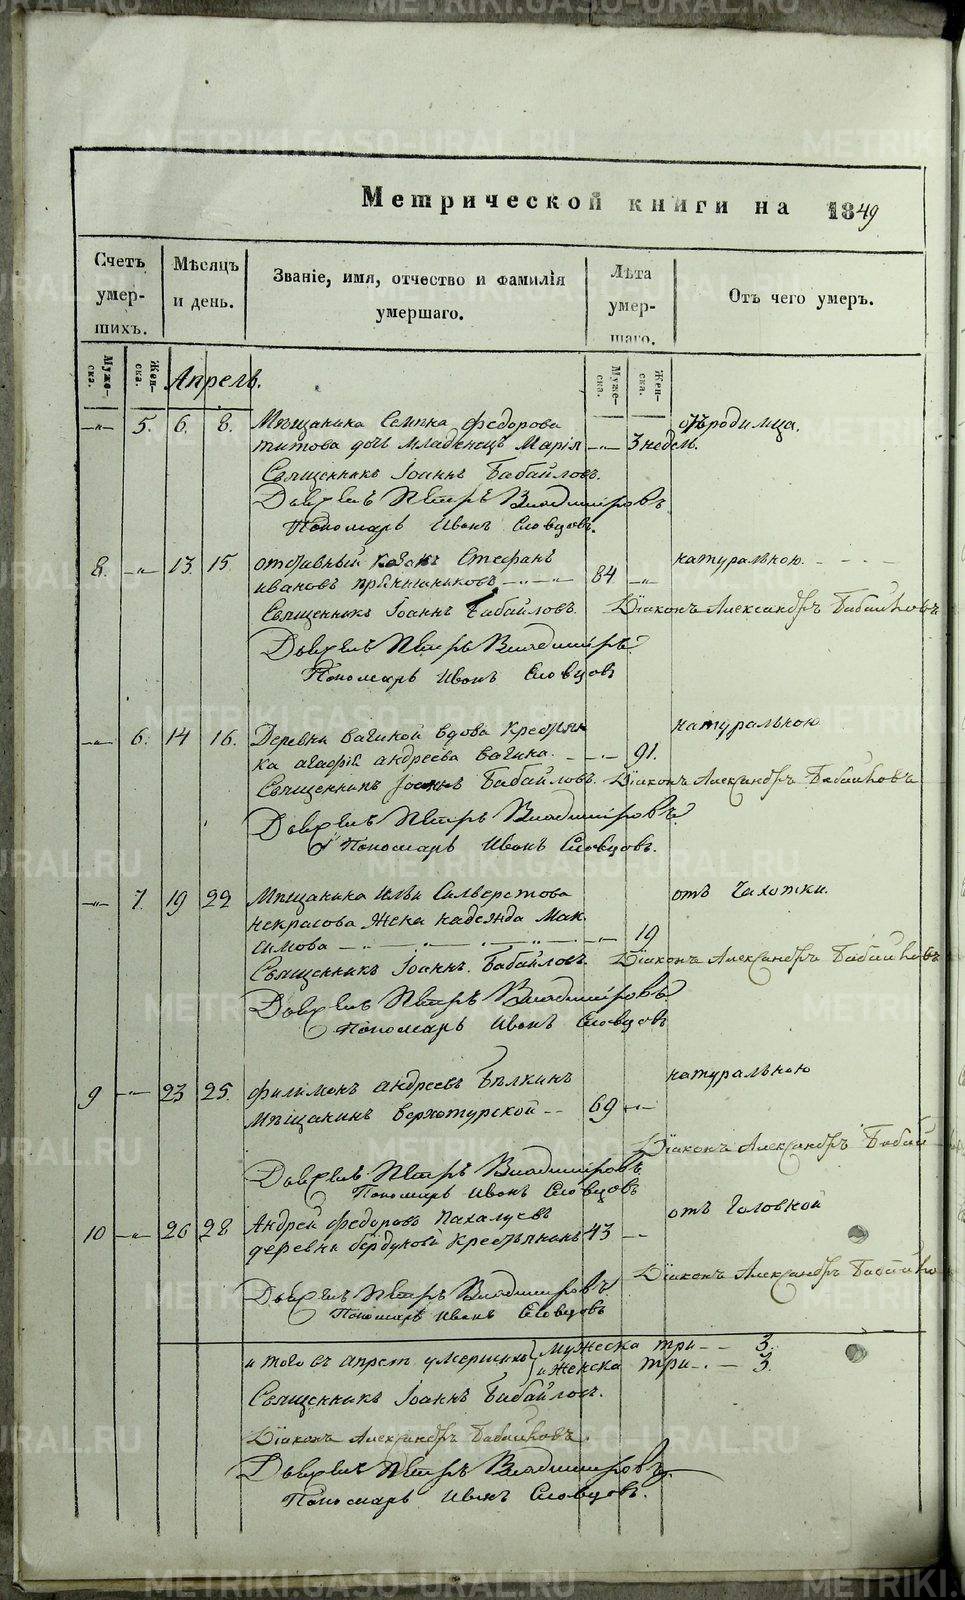 Метрической книги на 1849
Счетъ умер- шихъ.
Мѣсяцъ и день.
Званіе, имя, отчество и фамилія умершаго.
Лѣта умер- шаго.
Отъ чего умеръ.
Муже- ска.
Жен- ска.
Апрель.
Муже- ска.
Жен- ска.
5. 6. 8. Мѣщанина Семіона Федорова отъ родимца.
титова дочь младенецъ Марія 3 недел.
Священникъ Іоаннъ Бабайловъ.
Дьячекъ Петръ Владиміровъ
Пономарь Иванъ Словцовъ.
8. 13. 15. отставный казакъ Стефанъ натуральною.
ивановъ прянишниковъ 84
Священникъ Іоаннъ Бабайловъ. Діаконъ Александръ Бабайловъ
Дьячекъ Петръ Владиміръ
Пономарь Иванъ Словцовъ
6. 14 16. Деревни вагиной вдова крестьян натуральною
ка агафія андреева вагина. 91.
Священникъ Іоаннъ Бабайловъ. Діаконъ Александръ Бабайловъ
Дьячекъ Петръ Владиміровъ
Пономарь Иванъ Словцовъ.
7. 19 22 Мѣщанина ильи Сильверстова отъ чахотки.
некрасова жена надежда Мак
симова 19
Священникъ Іоаннъ. Бабайловъ. Діаконъ Александръ Бабайловъ
Дьячекъ Петръ Владиміровъ
Пономарь Иванъ Словцовъ
9 23 25. филимонъ андреевъ Бѣлкинъ натуральною
Мѣщанинъ верхотурской 69
Діаконъ Александръ Бабай
Дьячекъ Петръ Владиміровъ
Пономарь Иванъ Словцовъ
10 26 28 Андрей федоровъ Пахалуевъ отъ головной
деревни бердюгой крестьянинъ 43
Діаконъ Александръ Бабайло
Дьячекъ Петръ Владиміровъ
Пономарь Иванъ Словцовъ
итого въ апреле умершихъ мужеска три 3.
и женска три 3.
Священникъ Іоаннъ Бабайловъ.
Діаконъ Александръ Бабайловъ.
Дьячекъ Петръ Владиміровъ
Пономарь Иванъ Словцовъ.
METRIKI.GASO-URAL.RU